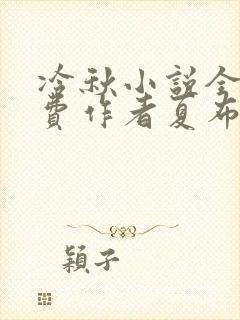 冷秋小說全
費作者夏布
穎子